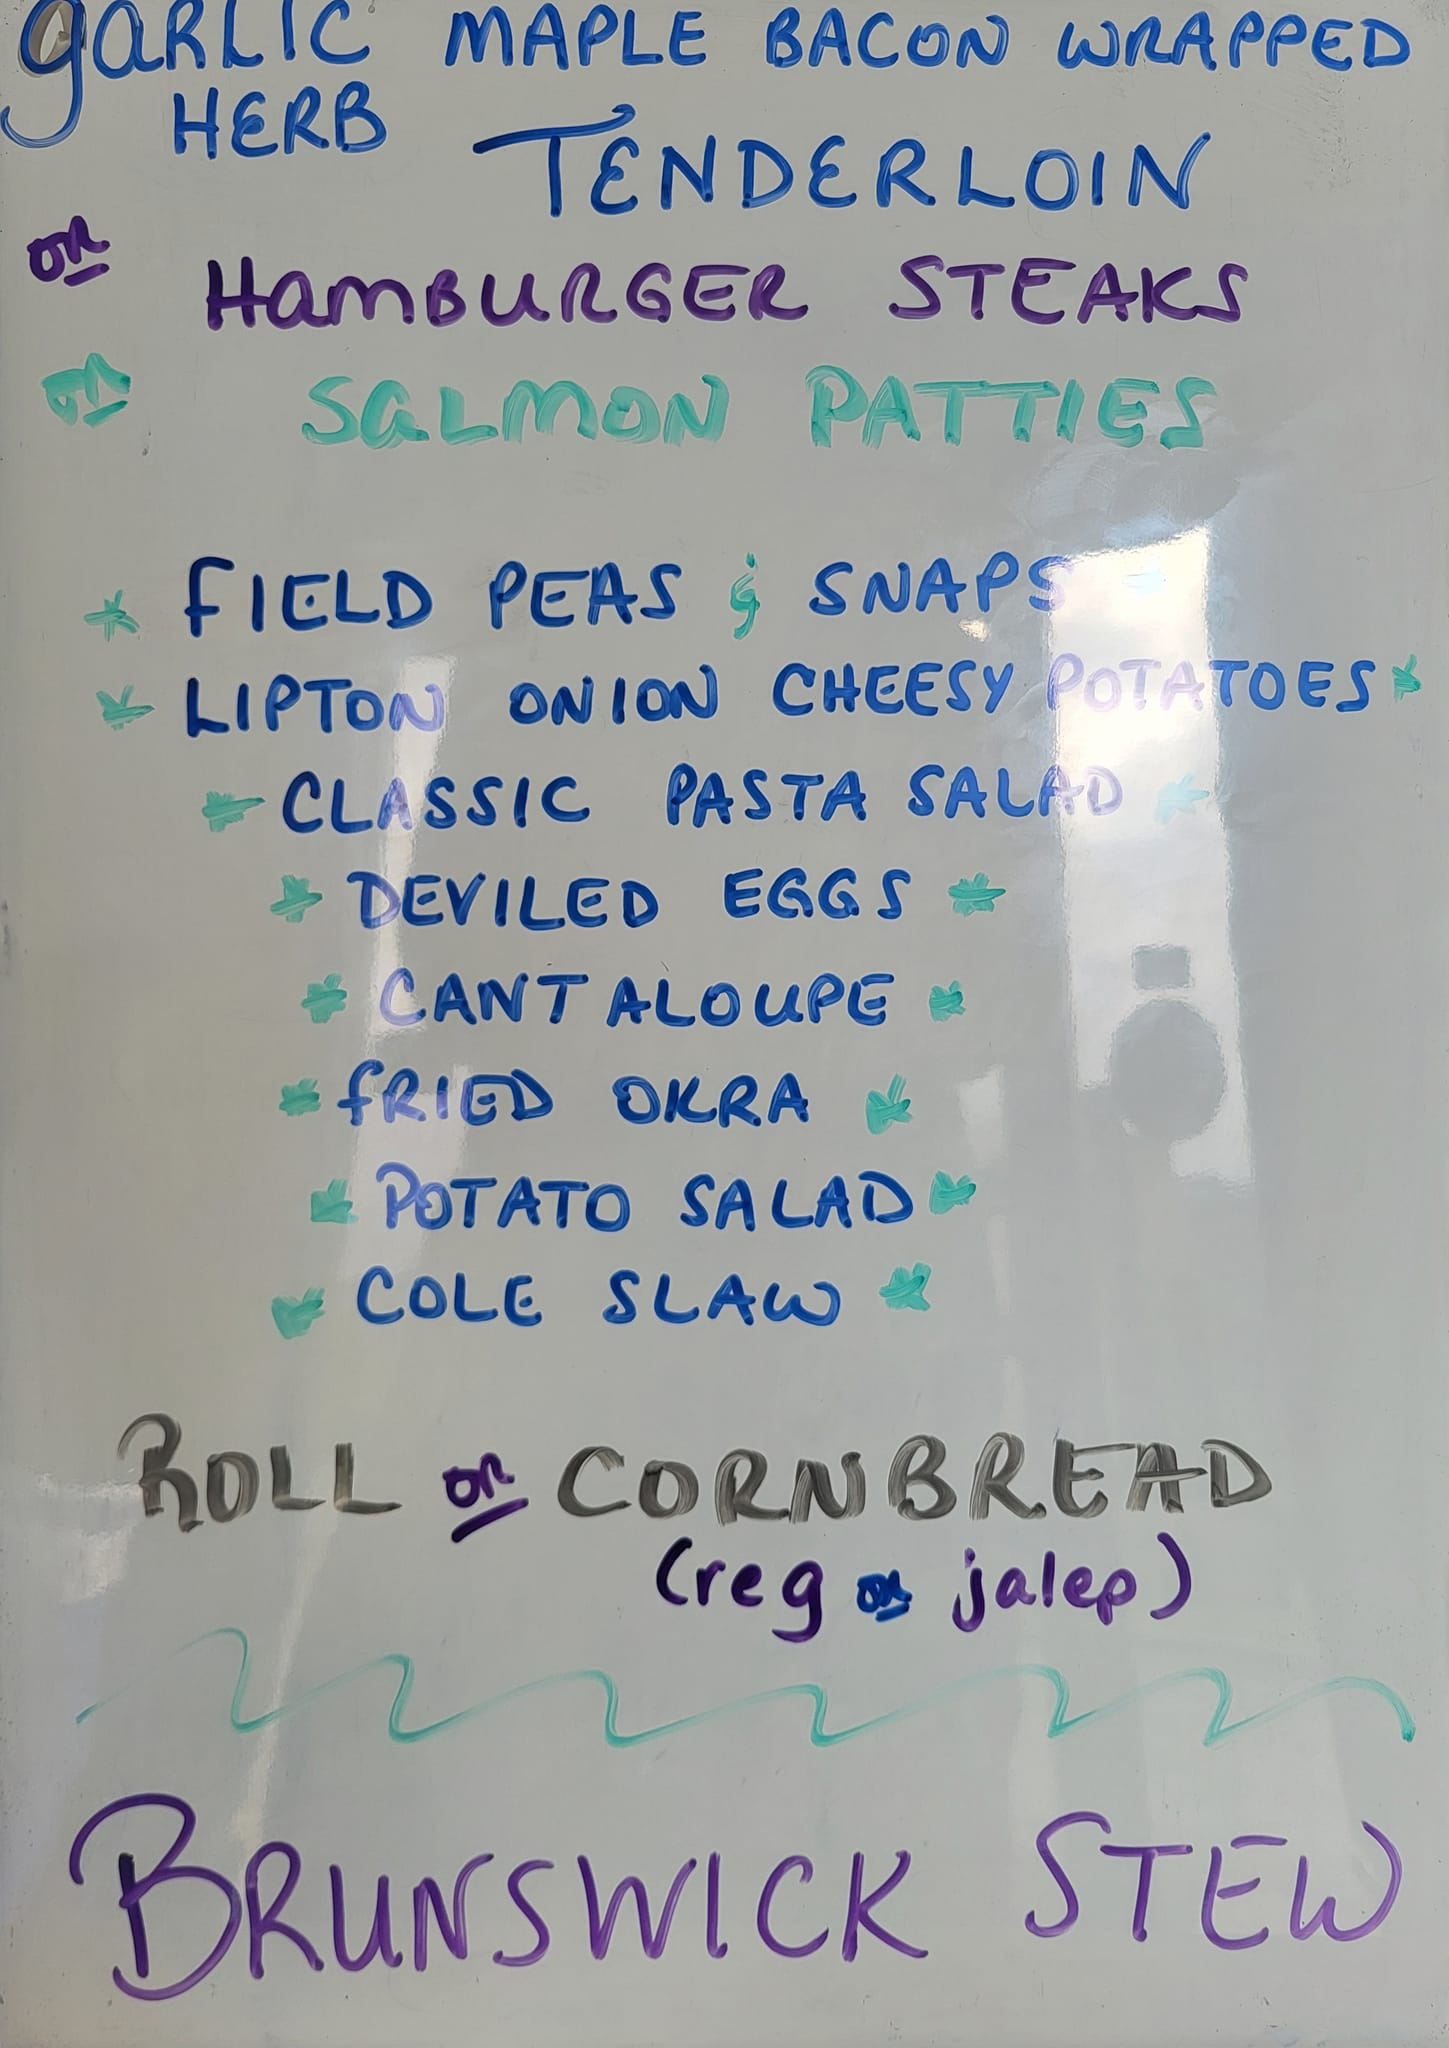 GARLIC MAPLE BACON WRAPPED
HERB TENDERLOIN
OR HAMBURGER STEAKS
OR SALMON PATTIES
* FIELD PEAS & SNAPS
* LIPTON ONION CHEESY POTATOES *
* CLASSIC PASTA SALAD *
* DEVILED EGGS *
* CANTALOUPE *
* FRIED OKRA *
* POTATO SALAD *
* COLE SLAW *
ROLL OR CORNBREAD
(reg OR jalep)
BRUNSWICK STEW